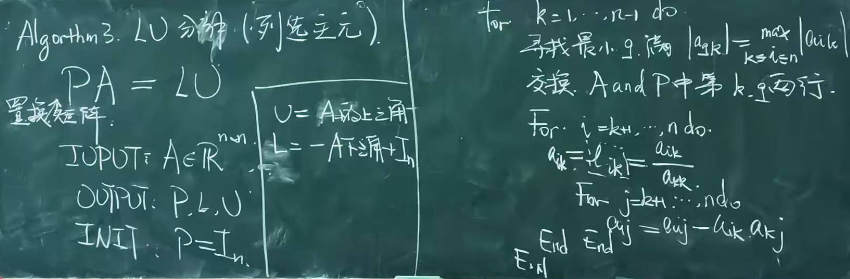 Algorthm 3. LU 分解 (列选主元).
PA = LU
置换矩阵.
IUPUT: A∈R^{n×n}
OUTPUT: P, L, U
INIT: P=I_n.
U = A的上三角
L = -A下三角+I_n
for k=1,…,n-1 do.
寻找最小q.满 |a_{qk}| = max_{k≤i≤n} |a_{ik}|
交换 A and P中第 k,q两行.
For. i=k+1,…,n do.
a_{ik} = l_{ik} = a_{ik}/a_{kk}
For j=k+1,…,n do
a_{ij} = a_{ij} - a_{ik}.a_{kj}
End
End
End